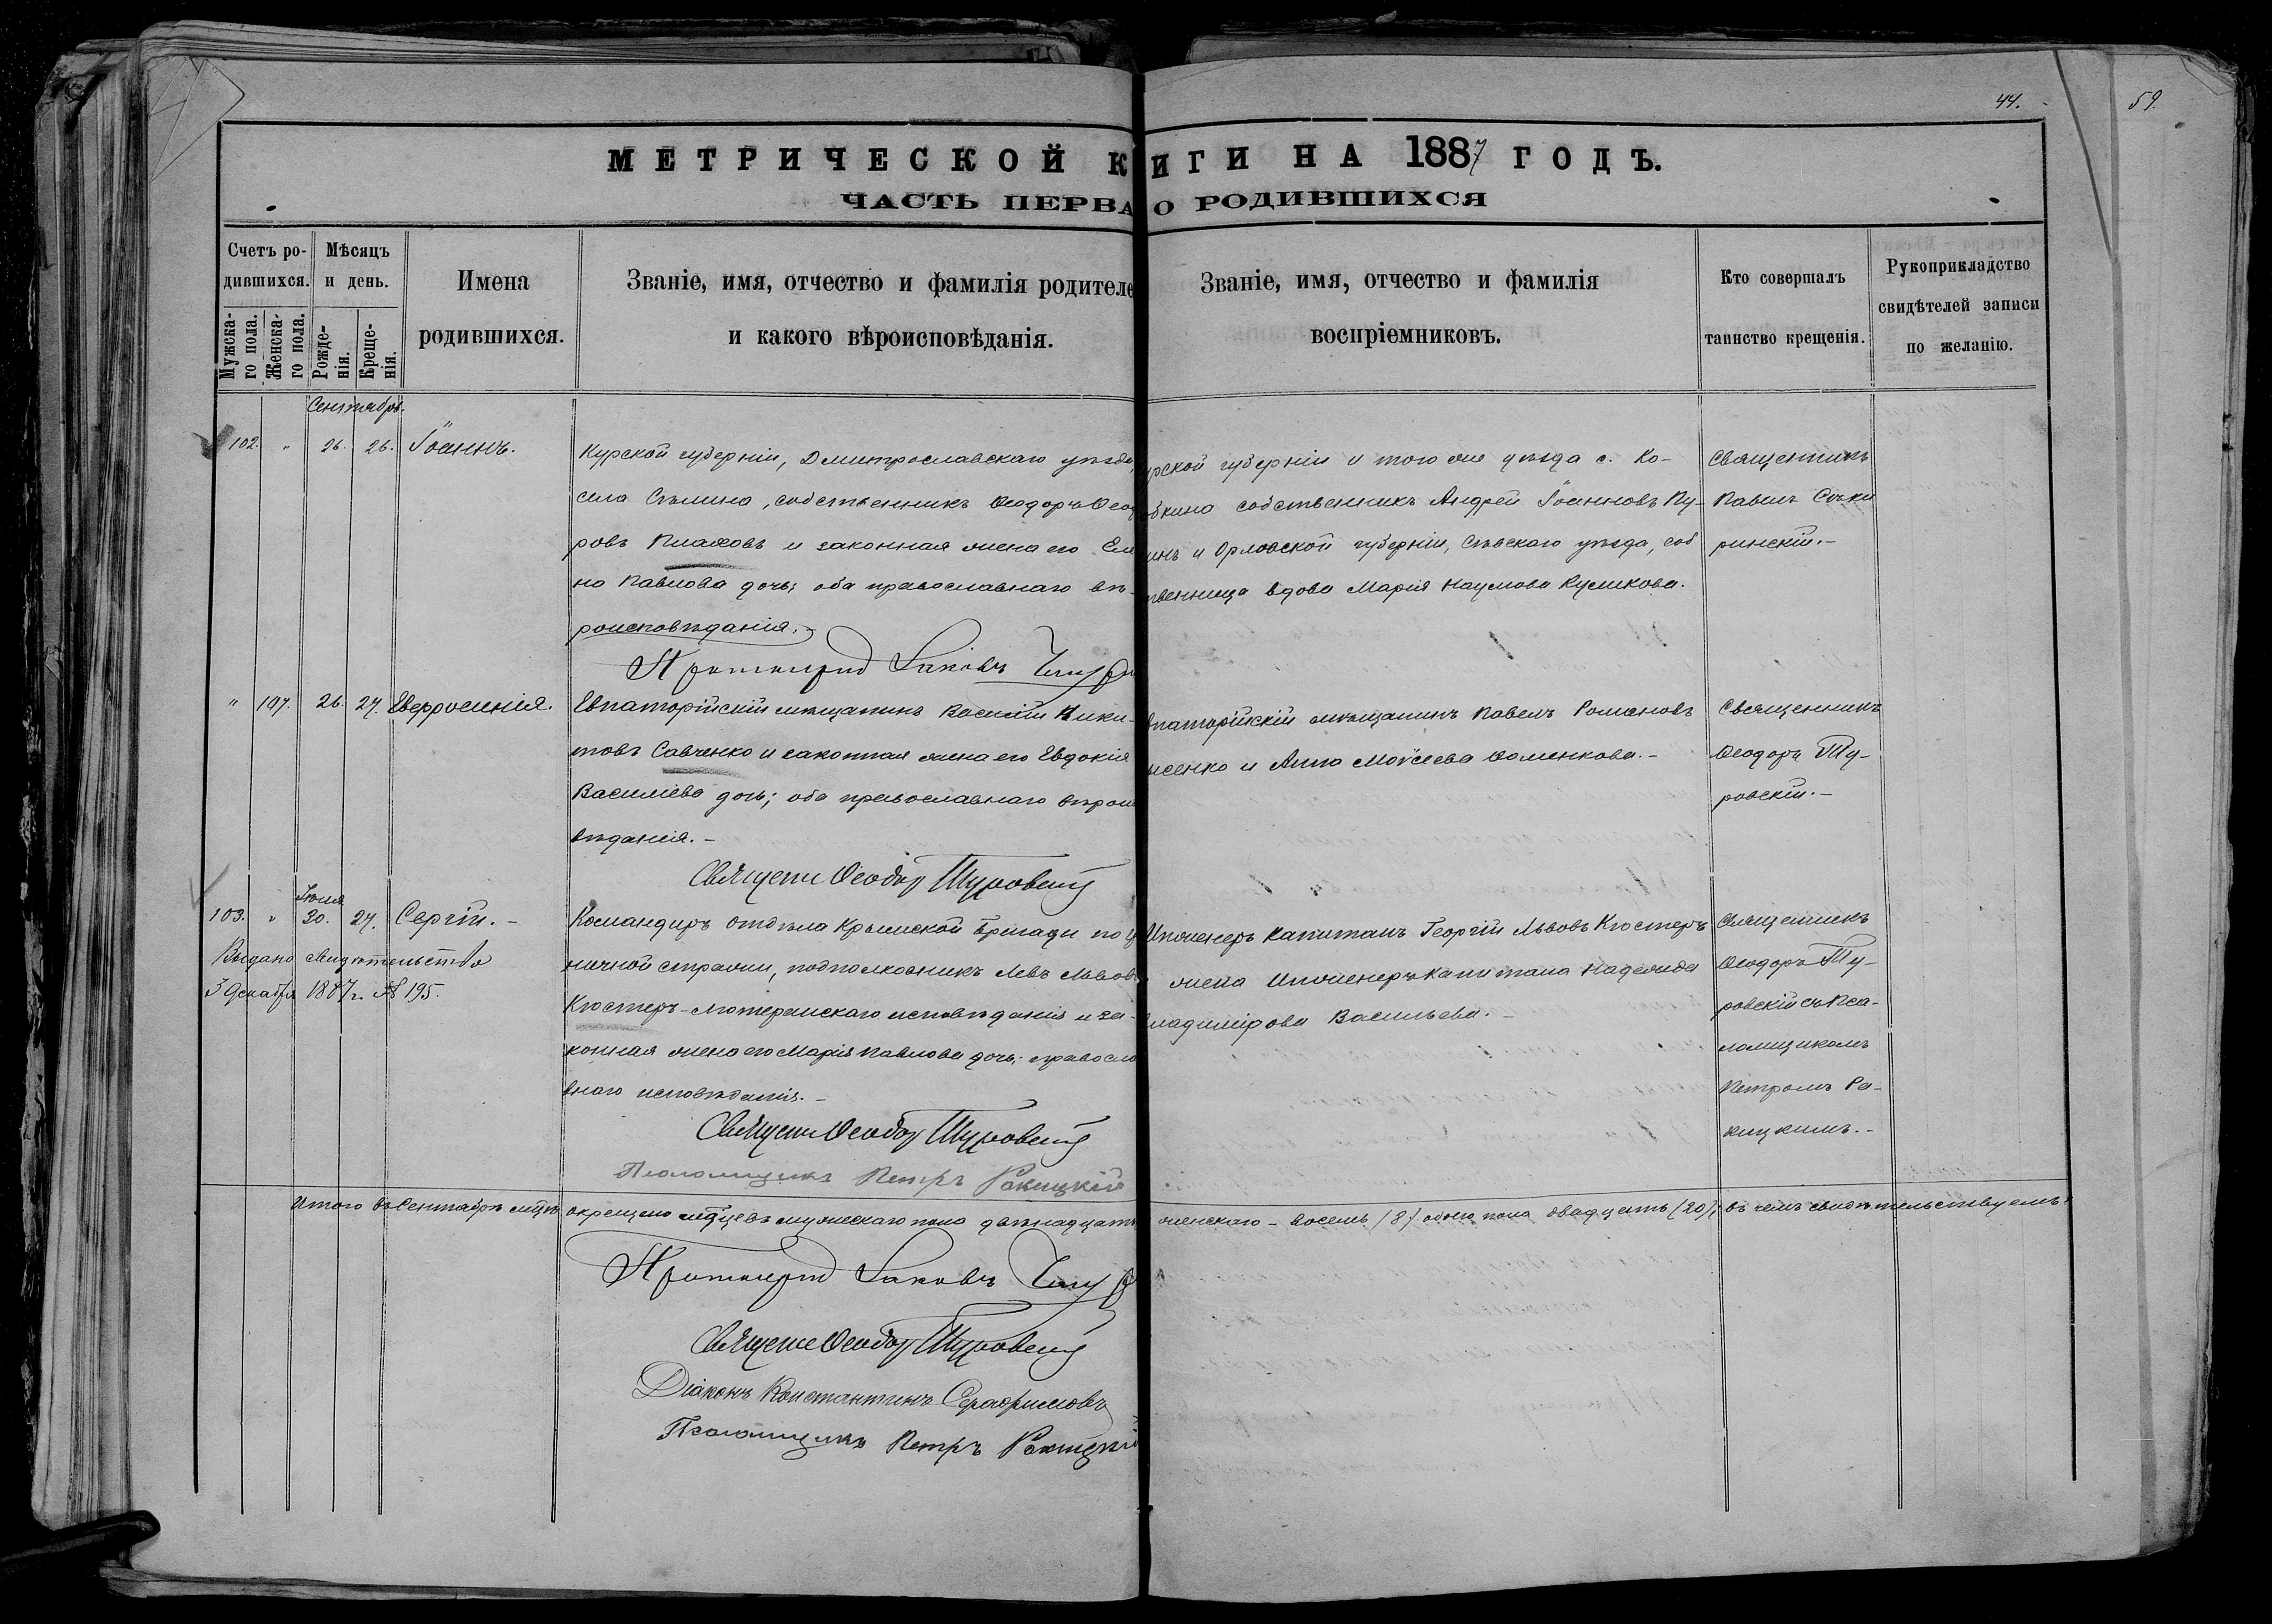 44.
59.
МЕТРИЧЕСКОЙ К
ИГИ НА 1887 ГОДЪ.
ЧАСТЬ ПЕРВА
О РОДИВШИХСЯ
Счетъ ро-
дившихся.
Мужска-
го пола.
Женска-
го пола.
Мѣсяцъ
и день.
Рожде-
нія.
Креще-
нія.
Имена
родившихся.
Званіе, имя, отчество и фамилія родителе
и какого вѣроисповѣданія.
Званіе, имя, отчество и фамилія
воспріемниковъ.
Кто совершалъ
таинство крещенія.
Рукоприкладство
свидѣтелей записи
по желанію.
Сентябрь.
102. " 26. 26. Іоаннъ.
Курской губерніи, Дмитрославскаго уѣзда
села , собственникъ Ѳеодоръ Ѳеод
ровъ Плаховъ и законная жена его Еле
на Павлова дочь; оба православнаго вѣ-
роисповѣданія.
Протоіерей Іаковъ
рской губерніи и того же уѣзда с. Ко-
бкина собственникъ Андрей Іоанновъ Пу-
инъ и Орловской губерніи, Сѣвскаго уѣзда, соб
твенница вдова Марія Наумова Куликова.
Священникъ
Павелъ Сѣки
ринскій.-
" 107. 26. 27. Евфросинія.
Евпаторійскій мѣщанинъ Василій Ники-
товъ Савченко и законная жена его Евдокія
Василіева дочь; оба православнаго вѣроис
вѣданія.-
Священ Ѳеодор Туровскій
впаторійскій мѣщанинъ Павелъ Романовъ
сенко и Анна Моѵсеева Фоменкова.-
Священникъ
Ѳеодоръ Ту-
ровскій.-
Іюля
103. " 30. 27. Сергій.-
Выдано свидѣтельство
3 Декабря 1887 г. № 195.
Командиръ отдѣла Крымской бригады по
ничной стражи, подполковникъ Левъ Львовъ
Кюстеръ-лютеранскаго исповѣданія и за-
конная жена его Марія Павлова дочь; правосла
внаго исповѣданія.-
Священ Ѳеодор Туровскій
Псаломщикъ Петръ Ракицкій
Инженеръ Капитанъ Георгій Львовъ Кюстеръ
жена Инженеръ Капитана Надежда
ладимірова Васильева.-
Священникъ
Ѳеодоръ Ту-
ровскій съ Пса-
ломщикомъ
Петромъ Ра-
кицкимъ.-
Итого въ Сентябрѣ м-цѣ окрещено мл-цевъ мужескаго пола двѣнадцать
женскаго - восемь (8) обоего пола двадцать (20); въ чемъ свидѣтельствуемъ:
Протоіерей Іаковъ
Священ Ѳеодор Туровскій
Діаконъ Константинъ Серафимовъ
Псаломщикъ Петръ Ракицкій